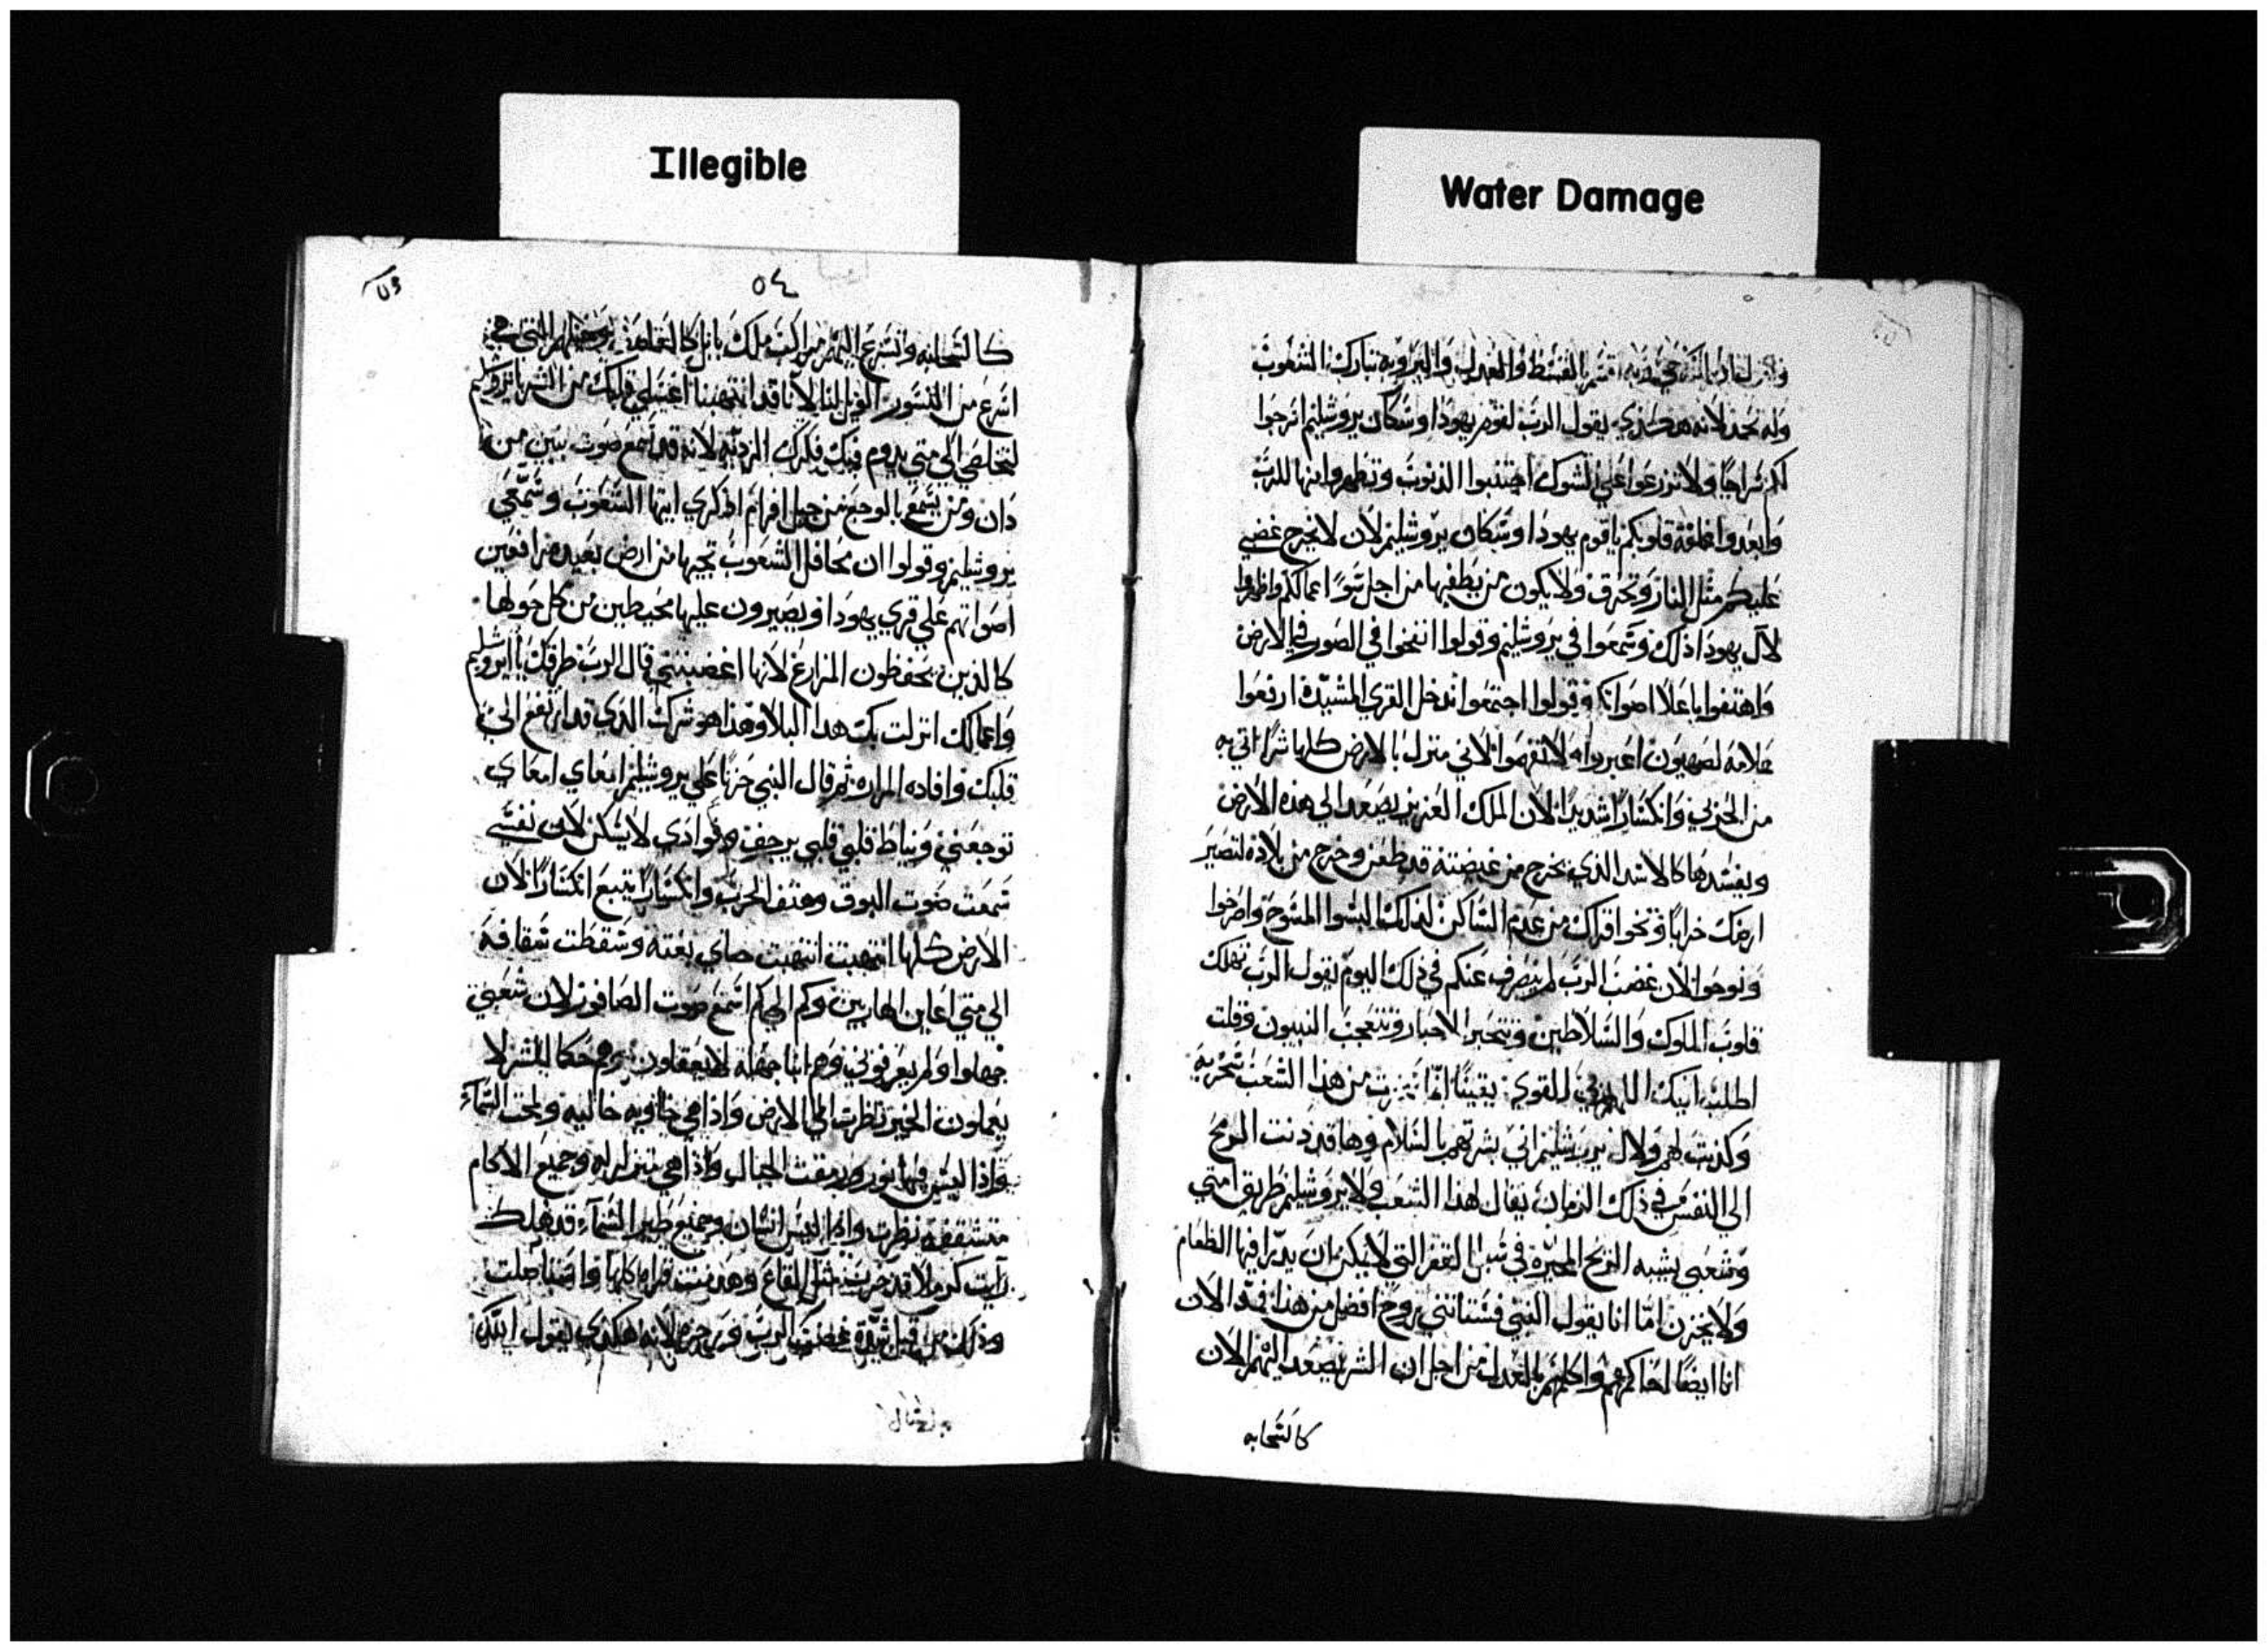 Illegible
Water Damage
بالقسط والعدل والبر وبه تبارك الشعوب
وله تحمد لانه هكذي يقول الرب لقوم يهودا وسكان يروشليم احرجوا
لكم سراجا ولا تزرعوا علي الشوك اجتنبوا الذنوب وتطهروا منها للرب
وابعدوا غلفة قلوبكم يا قوم يهودا وسكان يروشليم لان لا يخرج غضبي
عليكم مثل النار وتحرق ولا يكون من يطفيها من اجل سوا اعمالكم واظهروا
لال يهودا ذلك وسمعوا في يروشليم وقولوا انفخوا في الصور في الارض
واهتفوا باعلا اصواتكم وقولوا اجتمعوا ندخل القري المشيدة ارفعوا
علامة لصهيون اعبروا لا تقوموا لاني منزل بالارض كلها شرا اتي به
من الجربي وانكسارا شديدا لان الملك العزيز يصعد الي هذه الارض
ويفسدها كالاسد الذي يخرج من غيضته قد ظعن وخرج من بلاده لتصير
ارضك خرابا وتخوا قراك من عدم الساكن لذلك البسوا المسوح واصرخوا
ونوحوا لان غضب الرب لم ينصرف عنكم في ذلك اليوم يقول الرب تهلك
قلوب الملوك والسلاطين وتتحير الاحبار وتتعجب النبيون وقلت
اطلب اليك اللهم القوي يقينا من هذا الشعب
وكذبت لهم ولال يروشليم اني بشرتهم بالسلام وها قد دنت الرمح
الي النفس في ذلك الزمان يقال لهذا الشعب ولايروشليم طريق امتي
وشعبي يشبه الريح المحيرة في سبل القفر التي لا يمكن ان يدرا فيها الطعام
ولا يخزن اما انا يقول النبي فستاتني روح افضل من هذا الان
انا ايضا احاكمهم واكلمهم بالعدل من اجل ان الشر يصعد اليهم الان
كالسحابه
٥٤
كالسحابه وتسرع اليهم مراكب ملك بابل كالعاصف وخيلهم التي هي
اسرع من النسور الويل لنا لاننا قد انتهبنا اغسلي قلبك من الشر يا يروشليم
لتخلصي الي متي يدوم فيك فكرك الردية لانه قد اسمع صوت مبين من
دان ومن يسمع بالوجع من جبل افرام اذكري ايتها الشعوب وسمعي
يروشليم وقولوا ان محافل الشعوب تجيها من ارض بعيده رافعين
اصواتهم علي قري يهودا ويصيرون عليها محيطين من كل حولها
كالذين يحفظون المزارع لانها اغضبتني قال الرب طرقك يا ايروشليم
واعمالك انزلت بك هذا البلا وهذا هو شرك الذي قد ارتفع الي
قلبك وافاده المراره ثم قال النبي حزنا علي يروشليم امعاي امعاي
توجعني ونياط قلبي قلبي يرجف وفوادي لا يسكن لان نفسي
سمعت صوت البوق وهتف الحرب وانكسارا يتبع انكسارا لان
الارض كلها انتهبت انتهبت بغتة وسقطت شقافه
الي متي اعاين الهاربين وكم الي كم اسمع صوت الصافور لان شعبي
جهلوا ولم يعرفوني وهم ابنا جهلة لا يعقلون حكما للشر لا
يعملون الخير نظرت الي الارض واذا هي خاويه خاليه ولحت السماء
واذا ليس فيها نور ورمقت الجبال واذا هي تتزلزل وجميع الاكام
متشققه نظرت واذا ليس انسان وجميع طير السماء قد هلك
رايت كرملا قد خرب مثل القاع وهدمت قراه كلها واستاصلت
وذلك من قبل شدة غضب الرب ورجزه لانه هكذي يقول